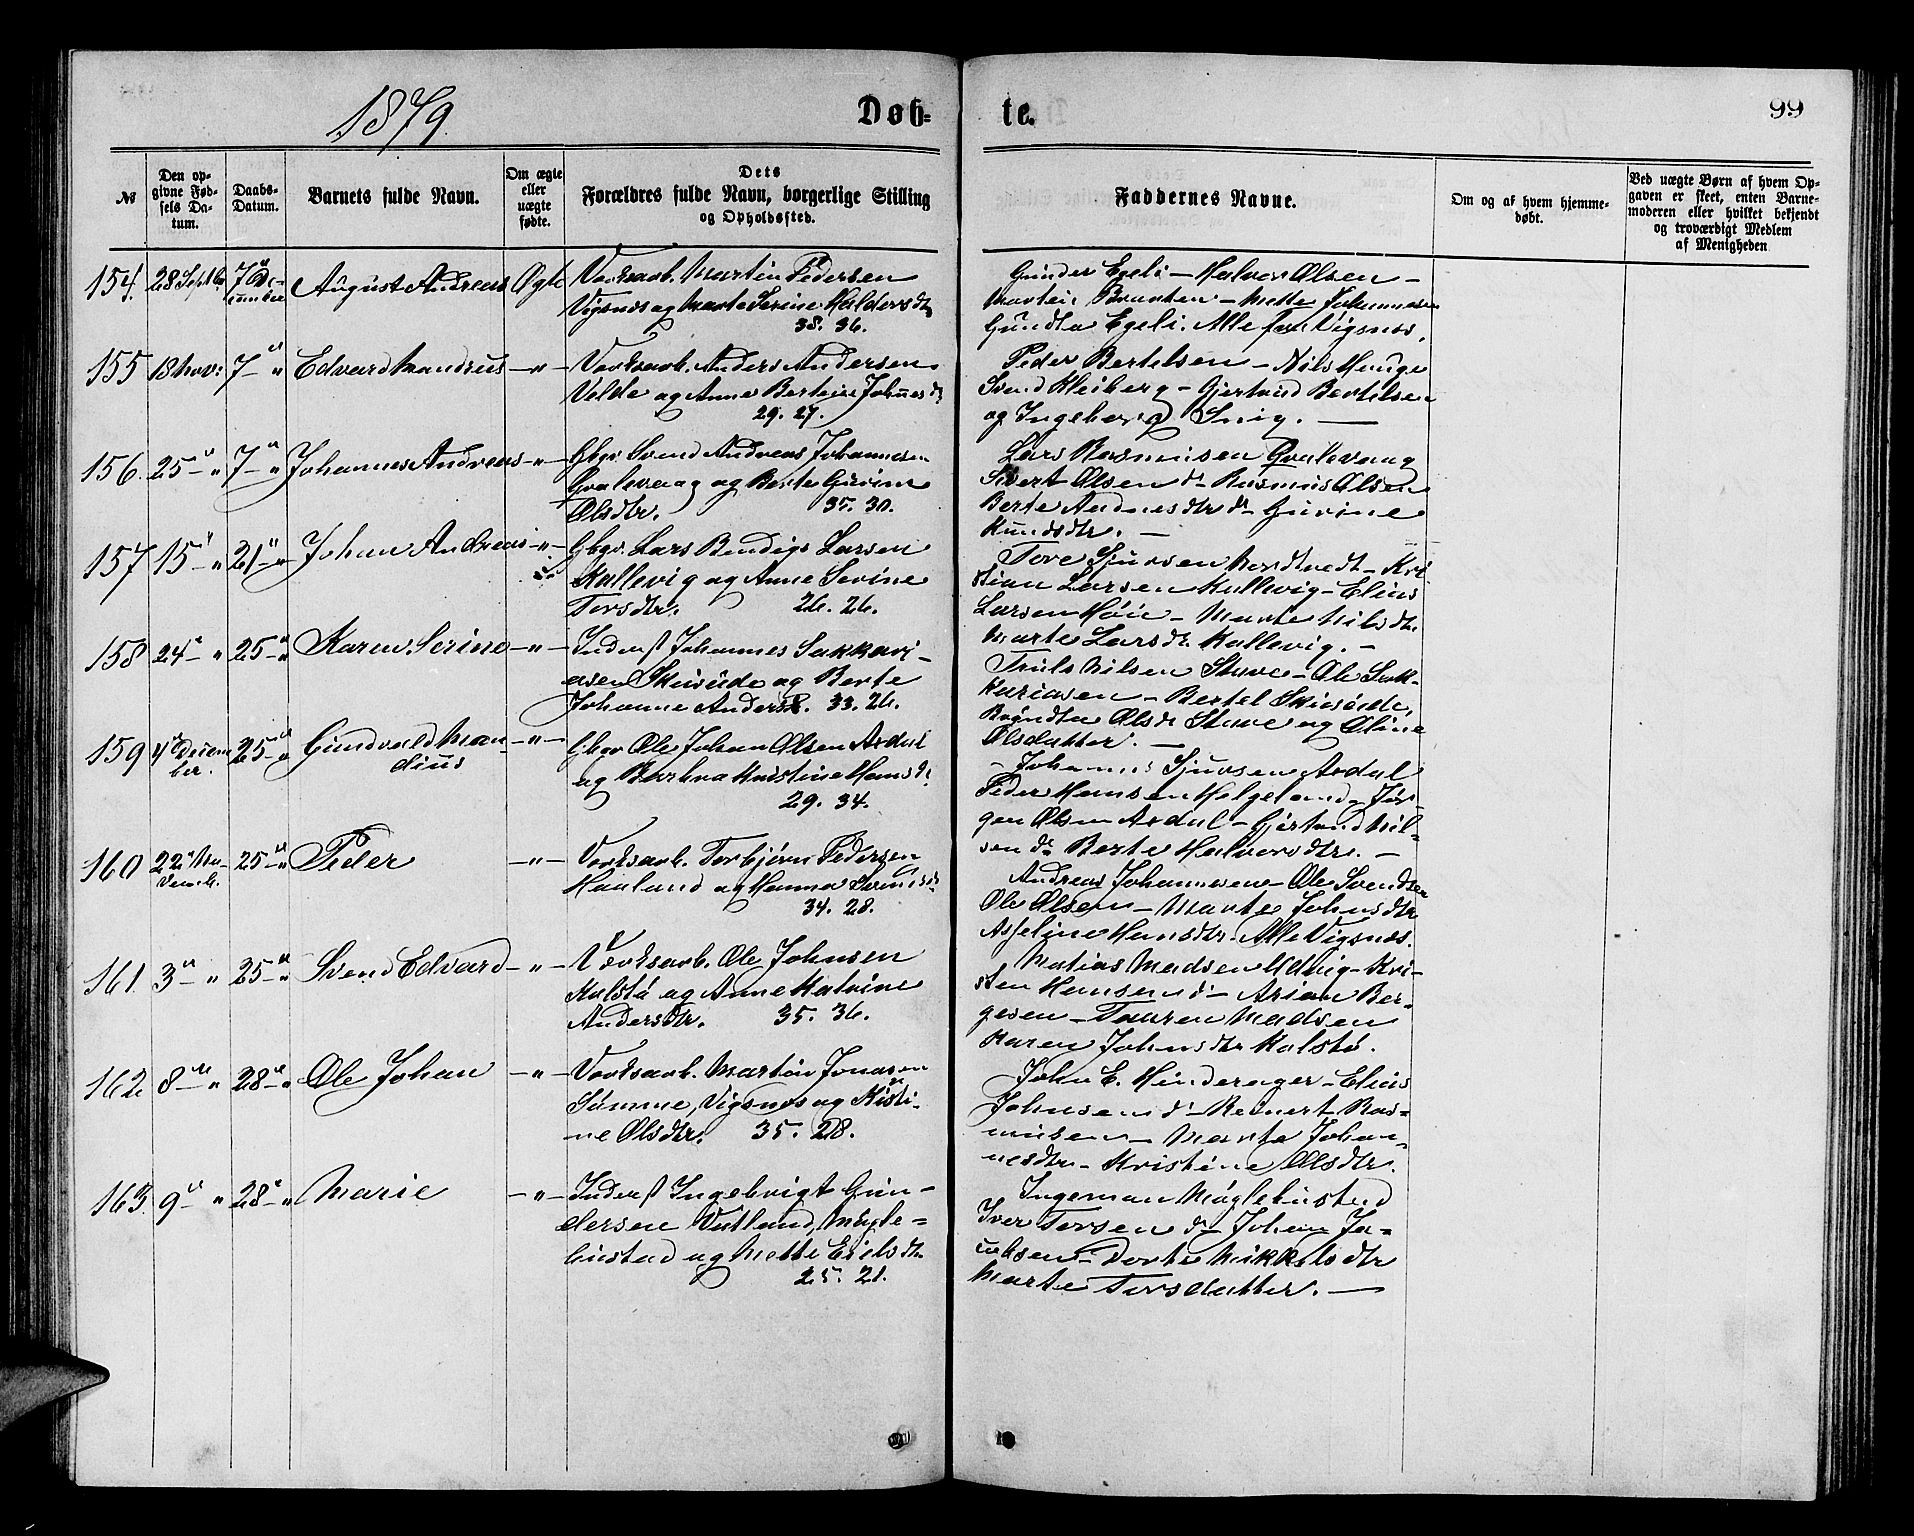 1879
Døb-
te.
99
№
Den op-
givne Fød-
sels Da-
tum.
Daabs-
Datum.
Barnets fulde Navn.
Om ægte
eller
uægte
fødte.
Dets
Forældres fulde Navn, borgerlige Stilling
og Opholdssted.
Faddernes Navne.
Om og af hvem hjemme-
døbt.
Ved uægte Børn af hvem Op-
gaven er skeet, enten Barne-
moderen eller hvilket bekjendt
og troværdigt Medlem
af Menigheden
154. 28 Septbr 7de De-
cember
August Andreas Ægte
Værksarb. Martin Pedersen
Vigsnæs og Marte Serine Haldorsdtr
38. 36.
Gunder Egeli - Halvor Olsen -
Martin Braaten - Mette Johannesen
Gundta Egeli. Alle fra Vigsnæs.
155 18 Nov: 7 - "
Edvard Mandrus - " -
Værksarb. Anders Andersen
Velde og Anne Bertine Johnesdtr
29. 27.
Peder Bertelsen - Nils Hauge
Svend Kleiberg - Gjertrud Bertelsen
og Ingeborg Snig. -
156. 25 - " 7 - "
Johannes Andreas - " -
Gbgr Svend Andreas Johannesen
Qvalevaag og Berte Gurine
Olsdtr. 35. 30.
Lars Rasmusen Qvalevaag
Sivert Olsen d - Rasmus Olsen
Berte Andreasdtr d - Gurine
Knudsdtr. -
157 15 - " 21 - "
Johan Andreas - " -
Gbgr. Lars Bendigs Larsen
Kallevig og Anne Serine
Torsdtr. 26. 26.
Tore Sjursen Nordtvedt - Kri-
stian Larsen Kallevig - Elias
Larsen Høie - Marte Nilsdtr.
Marte Larsdtr Kallevig. -
158 24 - " 25 - "
Karen Serine - " -
Inderst Johannes Sakkari-
asen Skeisüde og Berte
Johanne Andersd. 33. 26.
Truls Nilsen Stave - Ole Sak-
kariasen - Bertel Skeisüde,
Olsdtr Stave og Oline
Olsdatter. -
159 4de Decem-
ber. 25 - "
Gundvald Man-
dius - " -
Gbgr Ole Johan Olsen Ardal
og Barbra Kristine Hansdtr
29. 34.
- Johannes Sjursen Ardal
Peder Hansen Helgeland - Jør-
gen Olsen Ardal - Gjertrud Nil-
sen d - Berte Halvorsdtr. -
160 22de No-
vemb. 25 - "
Peder - " -
Værksarb. Torbjørn Pedersen
Haaland og Hanna
34. 28.
Andreas Johannesen - Ole Svendsen
Ole Olsen - Marte Johnsdtr
Asseline Hansdtr. Alle Vigsnæs.
161. 3 - " 25 - "
Svend Edvard - " -
Værksarb. Ole Johnsen
Kalstø og Anne Katrine
Andersdtr. 35. 36.
Matias Madsen Udvig - Kri-
sten Hansen d - Arian Bør-
gesen - Tauren Madsen
Karen Johnsdtr Kalstø.
162 8 - " 28 - "
Ole Johan - " -
Værksarb. Martin Jonasen
Sømme, Vigsnæs og Kristi-
ne Olsdtr. 35. 28.
John E. Hinderager - Elias
Johnsen d - Reinert Ras-
musen - Marta Johan-
nesdtr - Kristine Olsdtr.
163. 9 - " 28 - "
Marie - " -
Inderst Ingebrigt Gun-
dersen Vatland, Møgle-
bustad og Mette Erilsdtr
25. 21.
Ingeman Møglebustad
Iver Torsen d - Johan Ja-
cobsen - Dorte Mikkelsdtr
Marte Torsdatter. -